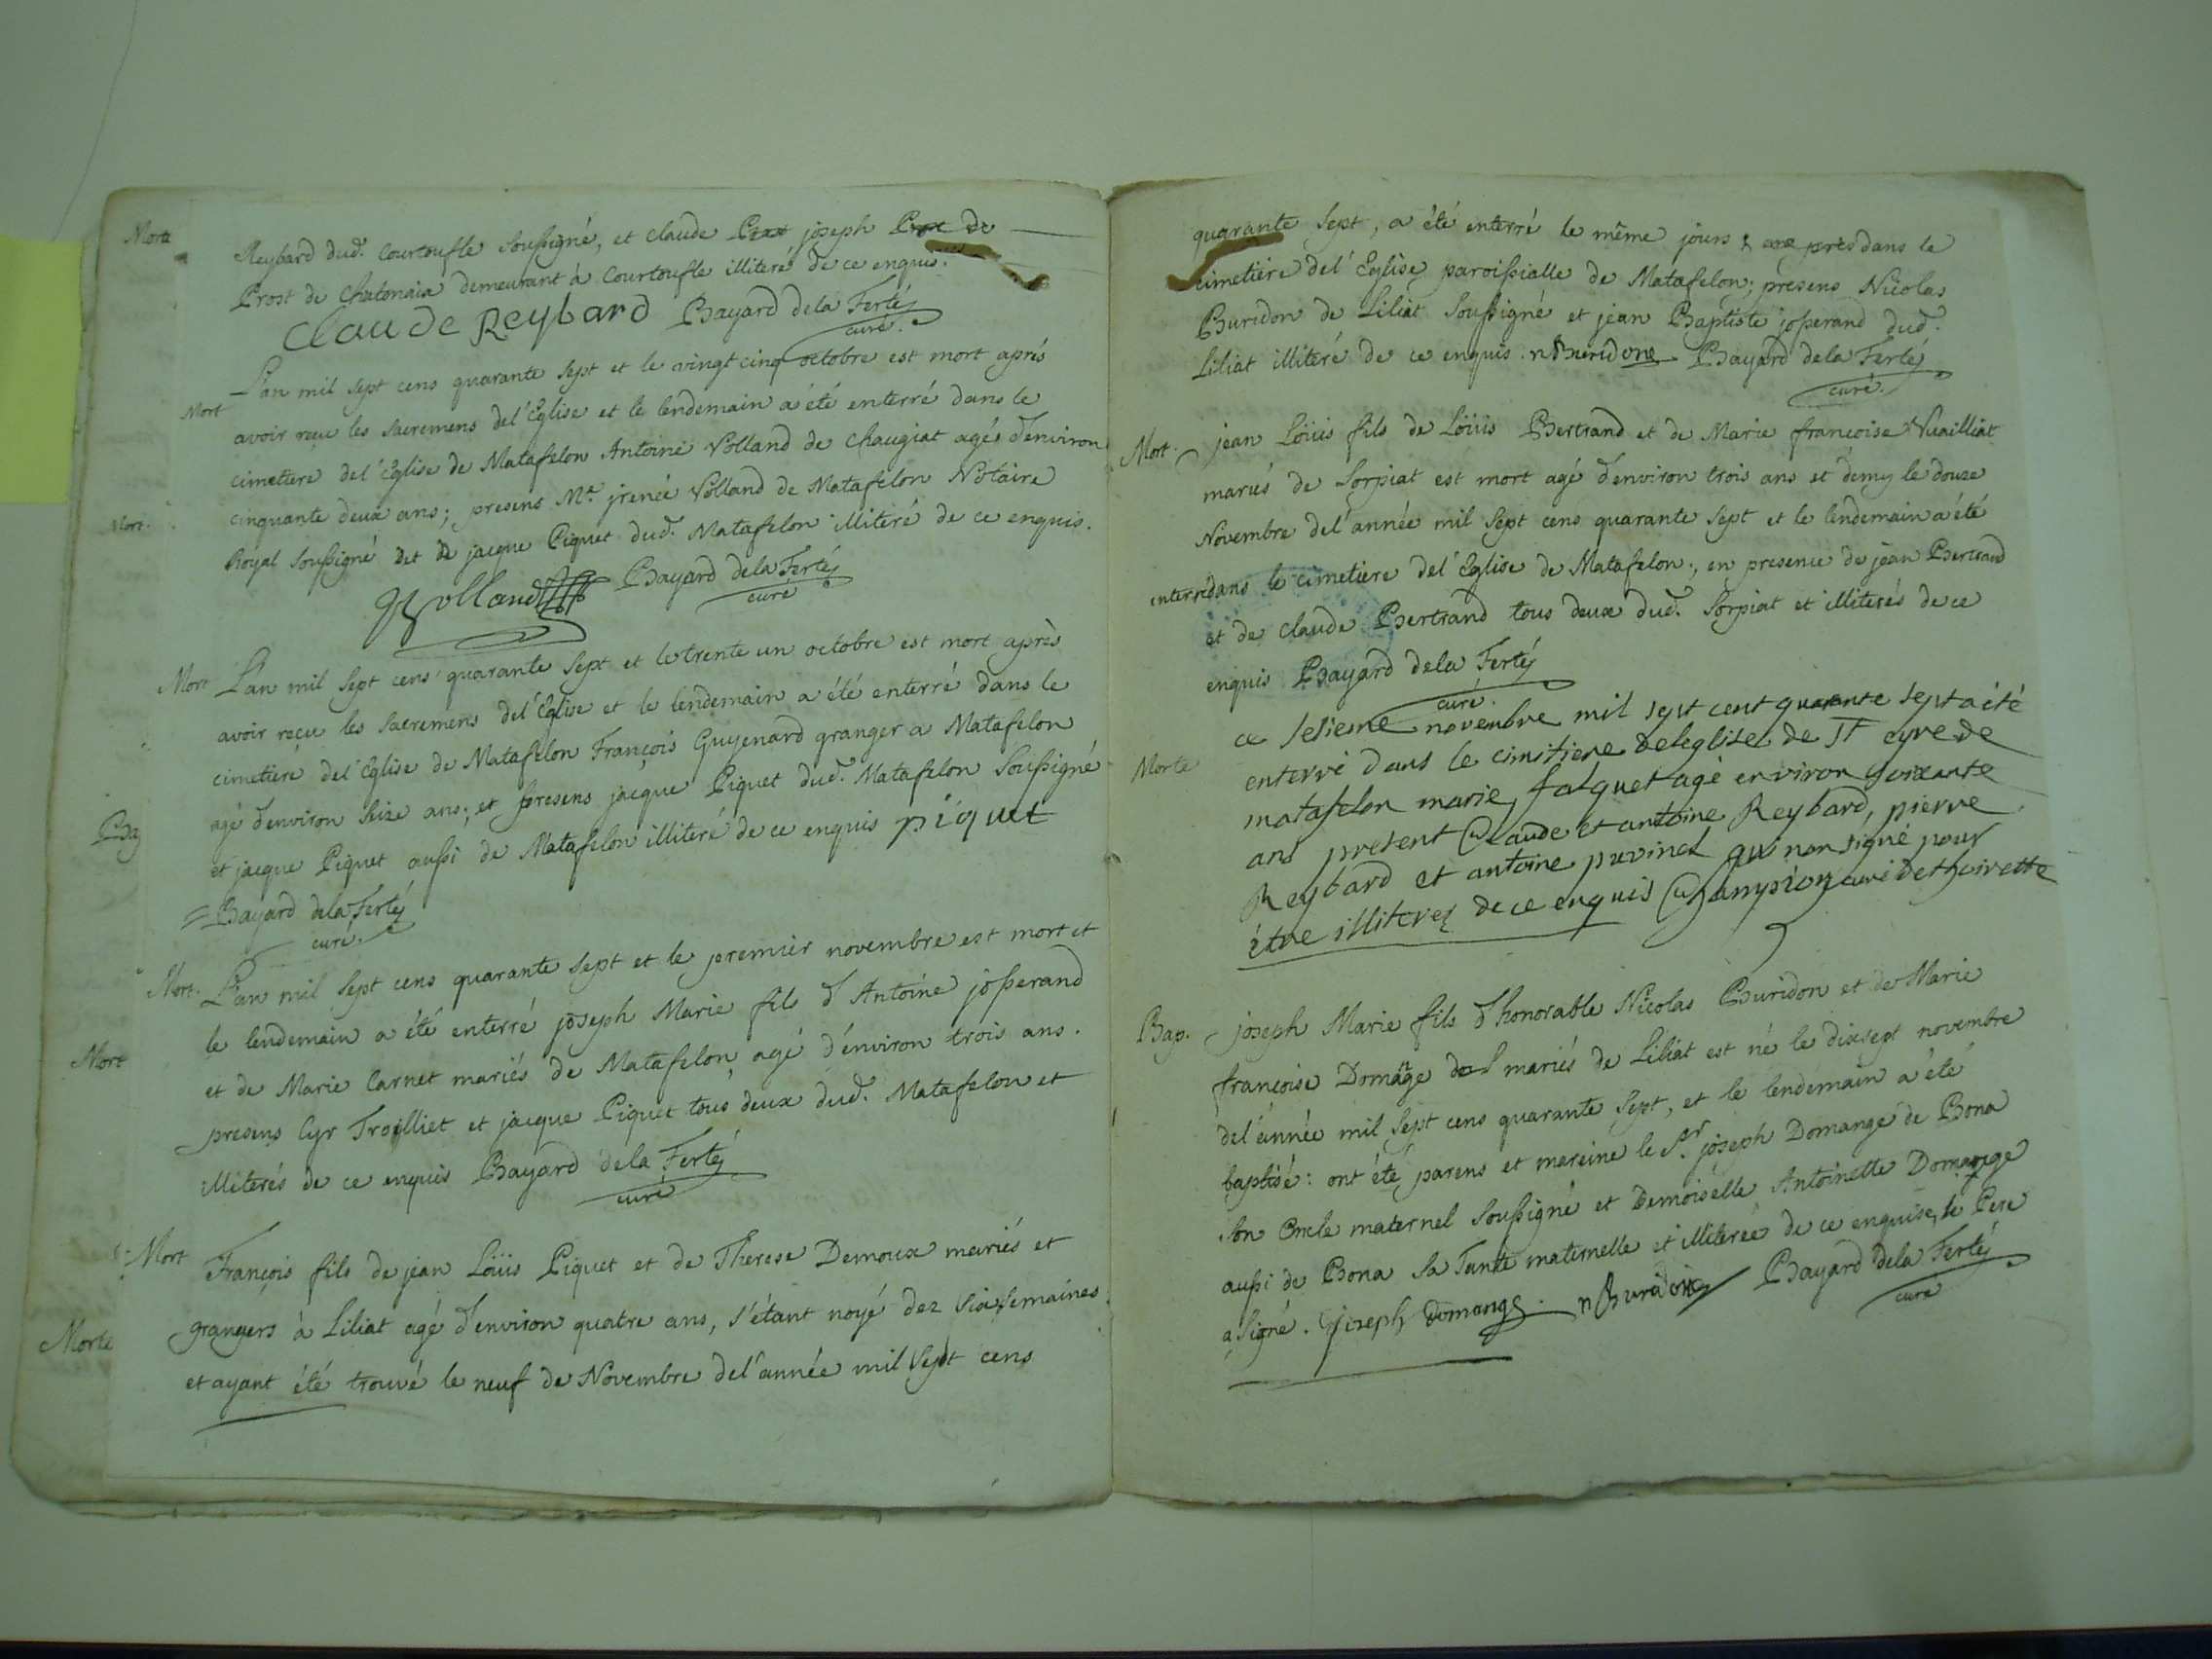 Reybard dud. Courtoufle soussigné, et claude joseph
Prost de Chatonaia demeurant à Courtoufle illiteré de ce enquis.
Claude Reybard Bayard dela Fertéy
curé.
Mort L'an mil sept cens quarante sept et le vingt cinq octobre est mort aprés
avoir reçu les sacremens del'Eglise et le lendemain a été enterré dans le
cimetiere del'Eglise de Matafelon Antoine Volland de Chaugiat agés d'environ
cinquante deux ans; presens Me. jrenée Volland de Matafelon Notaire
Royal soussigné et jacque Piquet dud. Matafelon illiteré de ce enquis.
Volland Bayard dela Fertéy
curé
Mort L'an mil sept cens quarante sept et le trente un octobre est mort après
avoir reçu les sacremens del'Eglise et le lendemain a été enterré dans le
cimetiere del'Eglise de Matafelon François Guyenard granger a Matafelon
agé d'environ seize ans; et presens jacque Piquet dud. Matafelon soussigné
et jacque Piquet aussi de Matafelon illiteré de ce enquis piquet
= Bayard dela Fertéy
curé.
Mort. L'an mil sept cens quarante sept et le premier novembre est mort et
le lendemain a été enterré joseph Marie fils d'Antoine josserand
et de Marie Carnet mariés de Matafelon, agé d'environ trois ans.
presens Cyr Troilliet et jacque Piquet tous deux dud. Matafelon et
illiterés de ce enquis Bayard dela Fertéy
curé
Mort François fils de jean Loüis Piquet et de Therese Demoux mariés et
grangers à Liliat agé d'environ quatre ans, s'étant noyé dez six semaines
et ayant été trouvé le neuf de Novembre del'année mil sept cens
Morte
Mort.
Bay
Mort
Morte
quarante sept, a été enterré le même jours dans le
cimetiere del'Eglise paroissialle de Matafelon; presens Nicolas
Buridon de Liliat soussigné et jean Baptiste josserand dud.
Liliat illiteré de ce enquis. n Buridone Bayard dela Fertéy
curé.
Mort. jean Loüis fils de Loüis Bertrand et de Marie françoise Vuailliat
mariés de Sorpiat est mort agé d'environ trois ans et demy le douze
Novembre del'année mil sept cens quarante sept et le lendemain a été
enterré dans le cimetiere del'Eglise de Matafelon, en presence de jean Bertrand
et de claude Bertrand tous deux dud. Sorpiat et illiterés de ce
enquis Bayard dela Fertéy
curé.
Morte ce sesieme novembre mil sept cent quarante sept a été
enterré dans le cimitiere delegliset de St cyre de
matafelon marie falquet agé environ soixante
ans present Claude et antoine Reybard, pierre
Reybard et antoine puvinel qui non signé pour
étre illiterez de ce enquis Champion curé de thoirette
Bap. joseph Marie fils d'honorable Nicolas Buridon et de Marie
françoise Domange mariés de Liliat est né le dixsept novembre
del'année mil sept cens quarante sept, et le lendemain a été
baptisé: ont été parens et mareine le Sr. joseph Domange de Bona
son Oncle maternel soussigné et Demoiselle Antoinette Domange
aussi de Bona sa Tante maternelle et illiterée de ce enquise, le Pere
a signé. joseph Domange. n Buridone Bayard dela Fertéy
curé